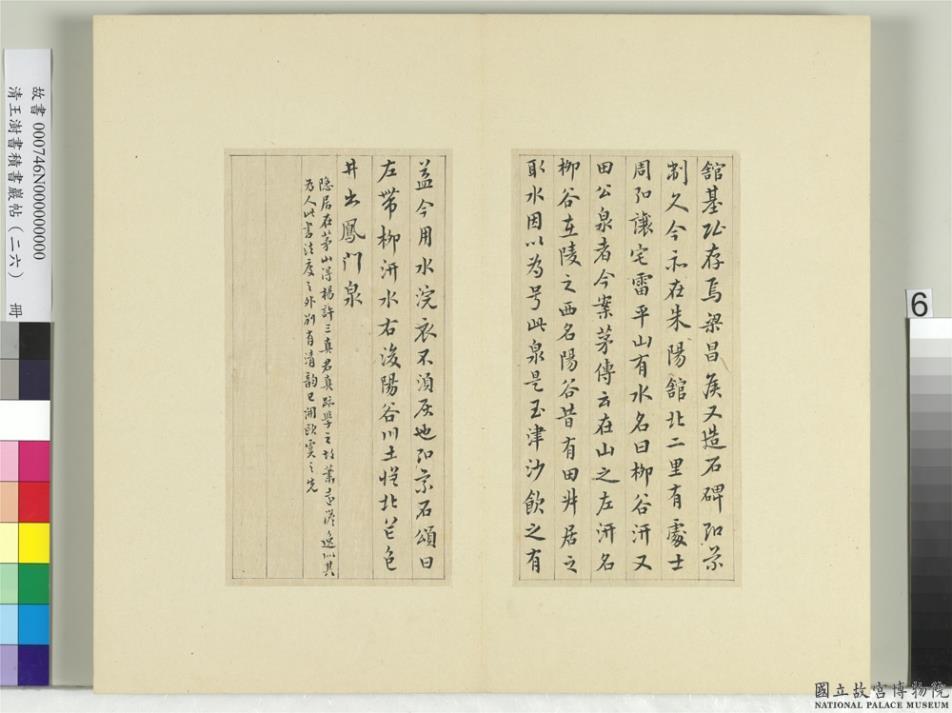 舘基址存焉梁昌侯又造石碑弘景
制久今示在朱陽舘北二里有處士
周弘讓宅雷平山有水名曰柳谷汧又
田公泉者今案茅傳云在山之左汧名
柳谷在陵之西名陽谷昔有田丼居之
取水因以為号此泉是玉津沙飲之有
益今用水浣衣不湏灰也弘景石頌曰
左帶柳汧水右浚陽谷川土恠北芒色
井出鳳门泉
隐居在茅山得楊許三真君真跡學之故蕭遠澹逸似其
為人此書法度之外別有清韵已開歐虞之先
故書 000746N000000000
清王澍書積書巖帖（二六） 冊
6
國立故宮博物院
NATIONAL PALACE MUSEUM